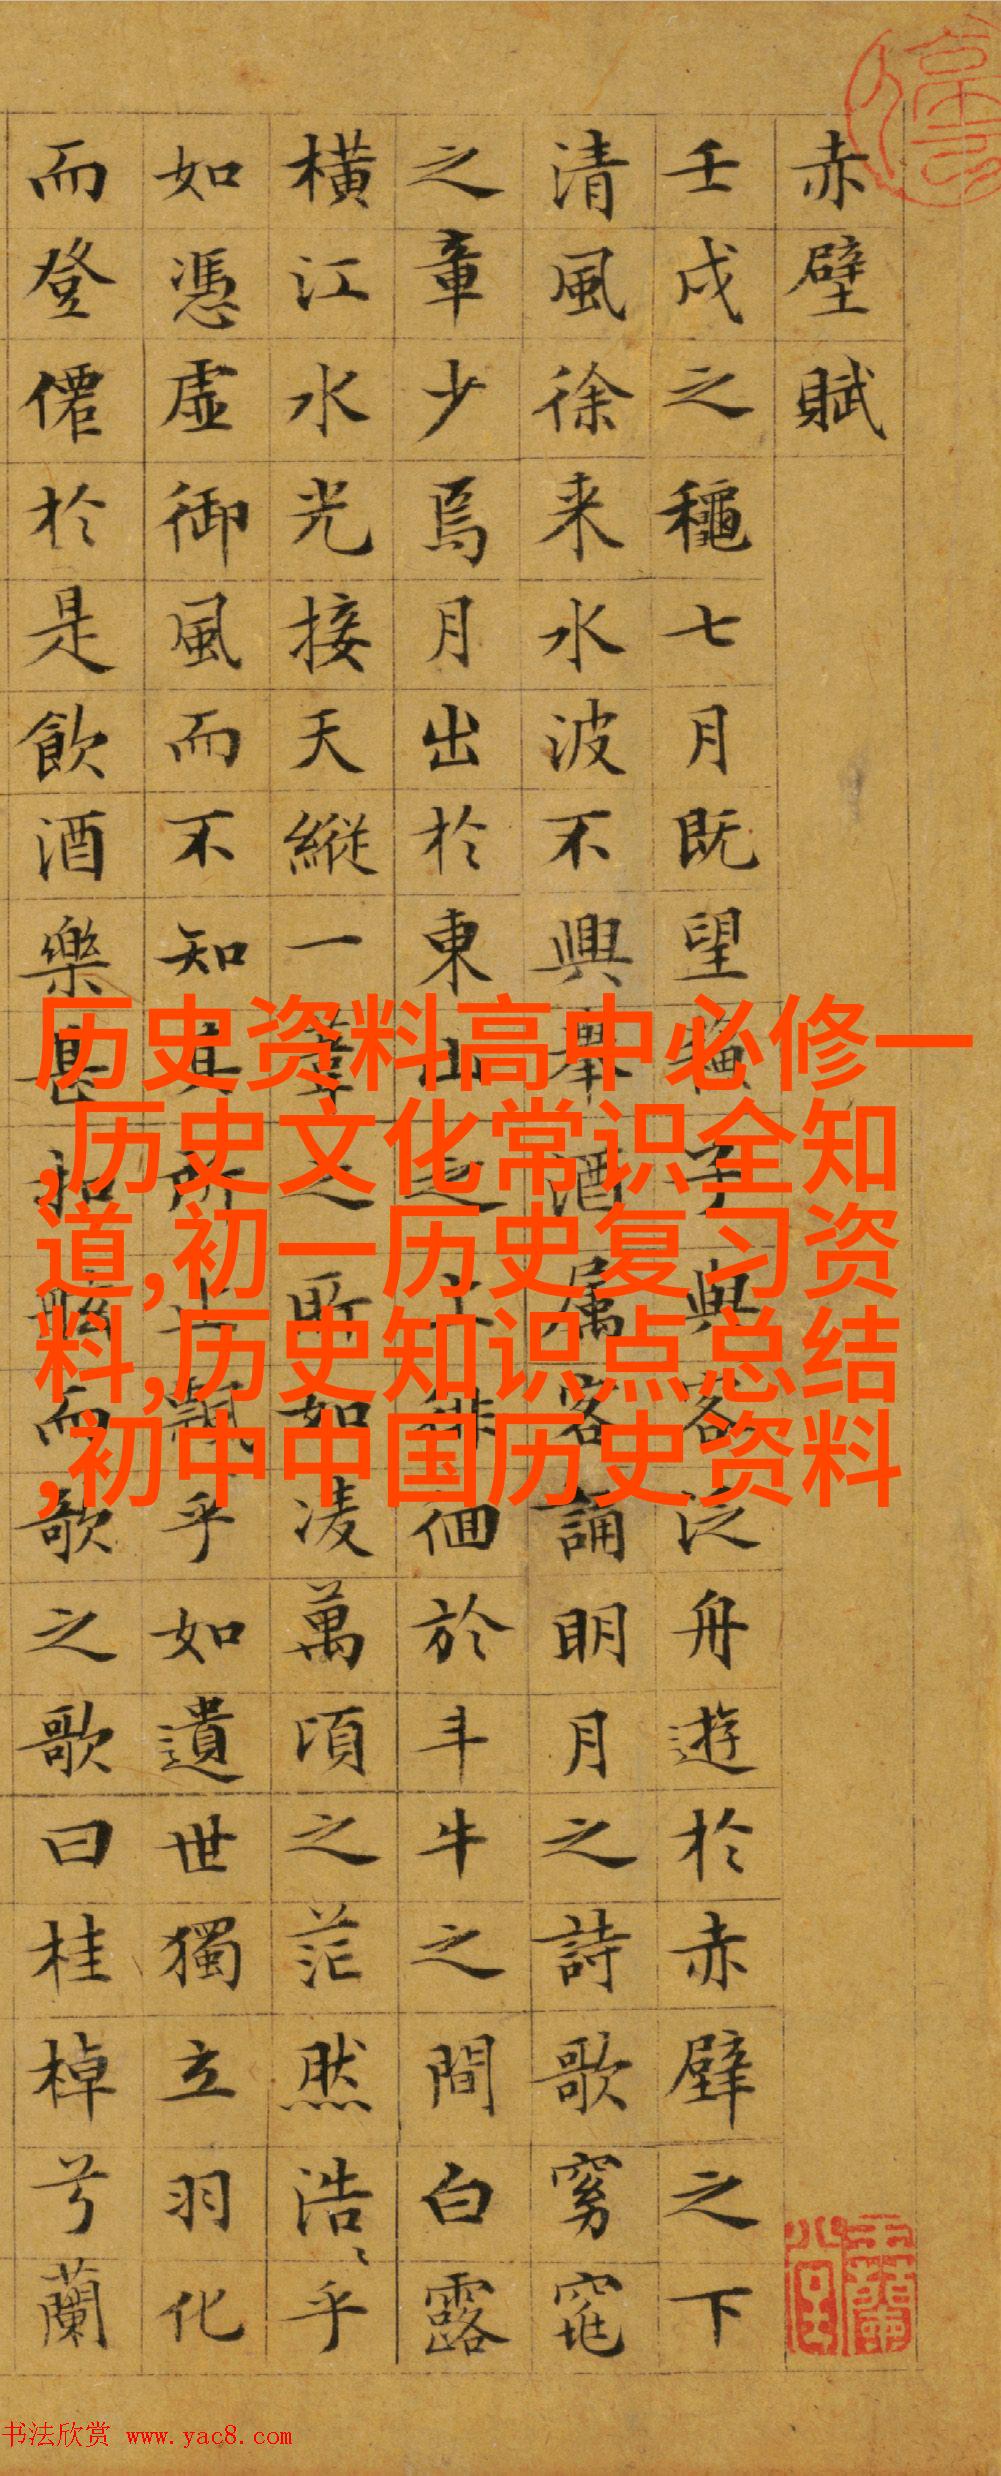 赤壁賦
壬戌之龝七月既望蘓子與客泛舟遊於赤壁之下
清風徐来水波不興舉酒属客誦明月之詩歌窈窕
之章少焉月出於東山之上徘徊於斗牛之間白露
橫江水光接天縱一葦之所如凌萬頃之茫然浩〻乎
如憑虛御風而不知其所止飄乎如遺世獨立羽化
而登僊於是飲酒樂甚扣舷而歌之歌曰桂棹兮蘭
历史资料高中必修一
,历史文化常识全知
道,初一历史复习资
料,历史知识点总结
,初中中国历史资料
书法欣赏 www.yac8.com